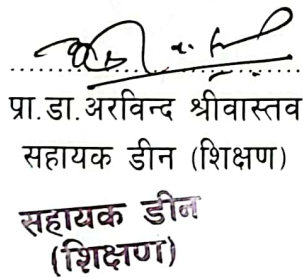 प्रा.डा.अरविन्द श्रीवास्तव
सहायक डीन (शिक्षण)
सहायक डीन
(शिक्षण)